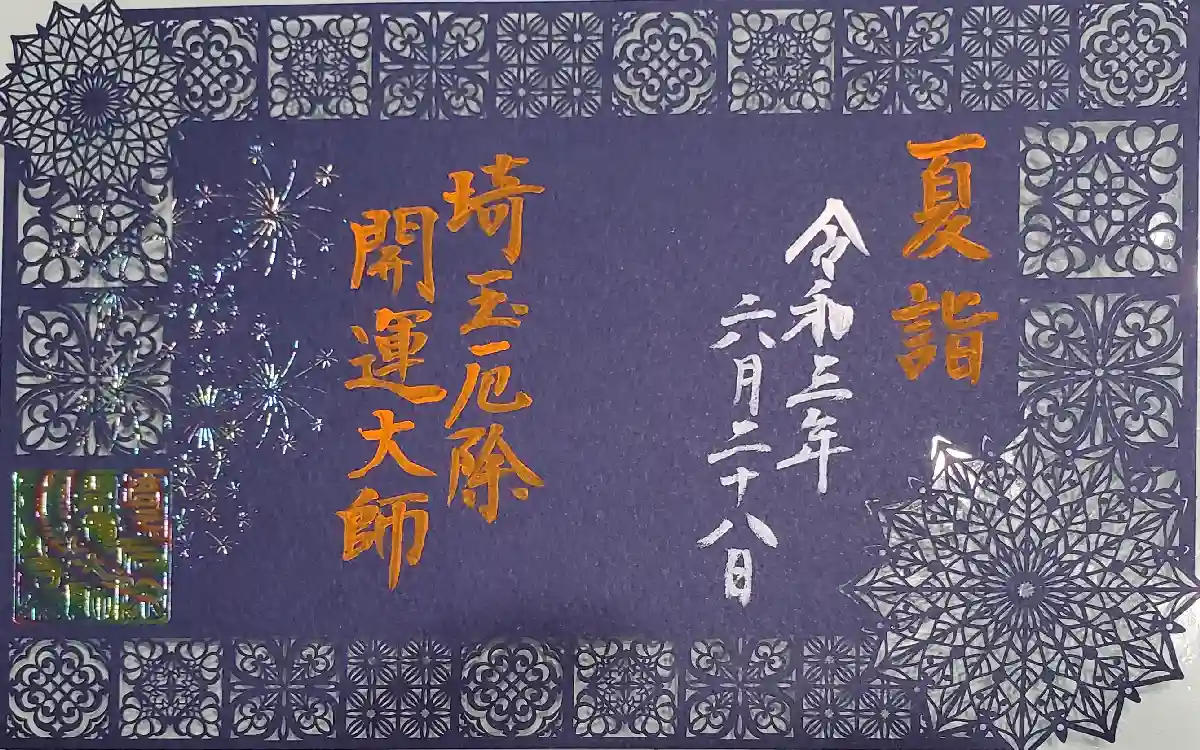 夏詣
令和三年
六月二十八日
埼玉厄除
開運大師